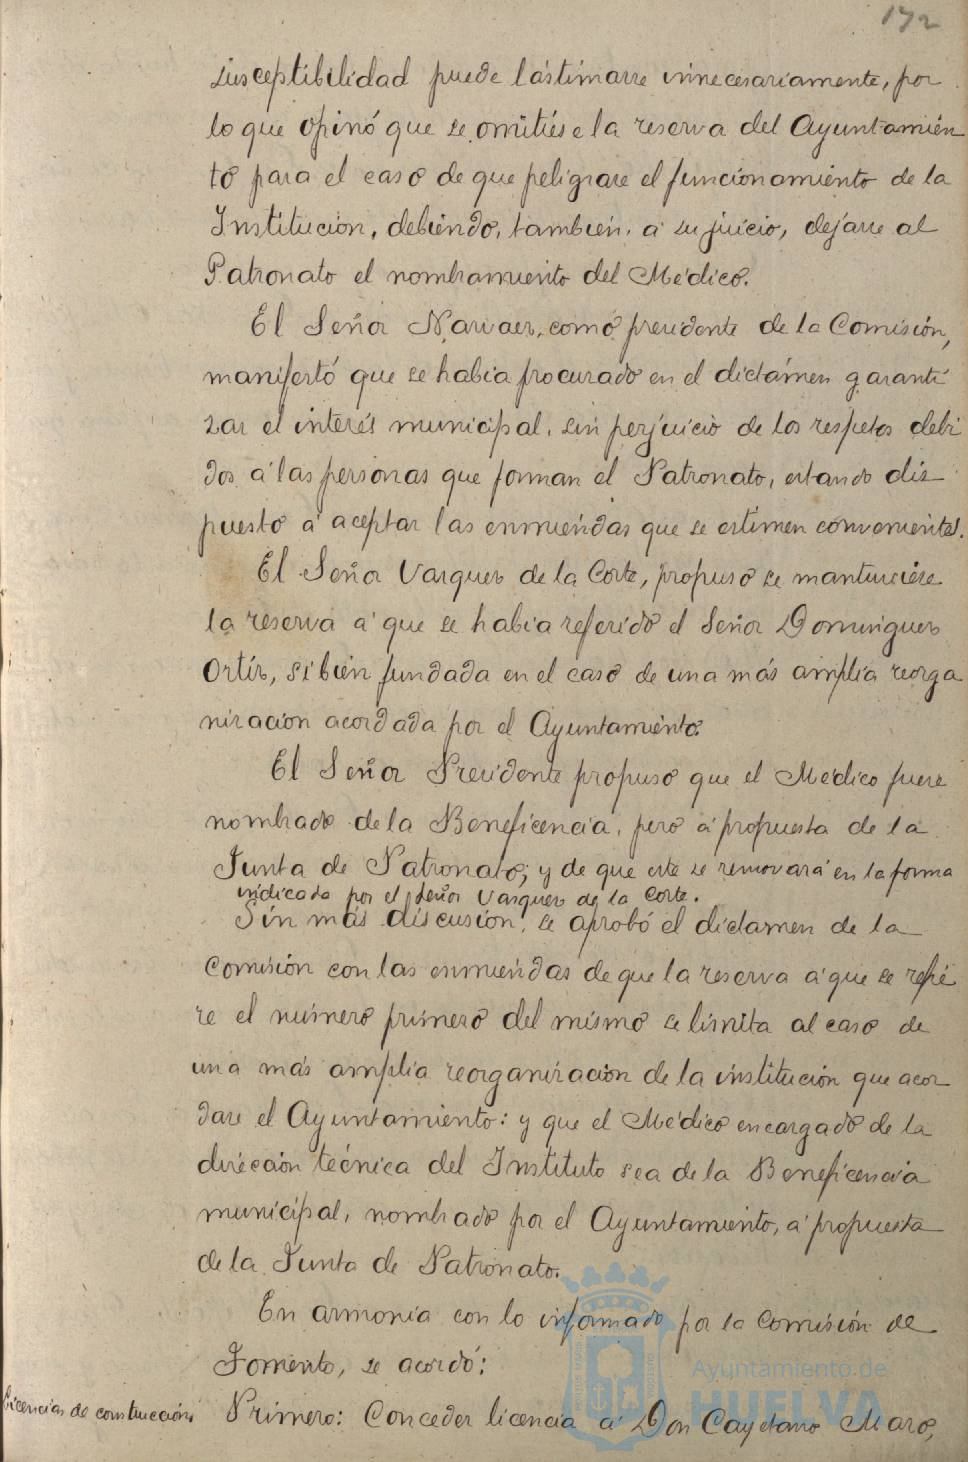 172
susceptibilidad puede lastimarse innecesariamente, por
lo que opinó que se omitiése la reserva del Ayuntamien
to para el caso de que peligrare el funcionamiento de la
Institución, debiendo, tambien, a su juicio, dejarse al
Patronato el nombramiento del Médico.
El Señor Narvaez, como presidente de la Comisión,
manifestó que se habia procurado en el dictámen garanti
zar el interés municipal, sin perjuicio de los respetos debi
dos á las personas que forman el Patronato, estando dis
puesto á aceptar las enmiendas que se estimen convenientes.
El Señor Vazquez de la Corte, propuso se mantuviese
la reserva á que se habia referido el Señor Dominguez
Ortíz, si bien fundada en el caso de una más amplia reorga
nización acordada por el Ayuntamiento.
El Señor Presidente propuso que el Médico fuere
nombrado de la Beneficencia, pero á propuesta de la
Junta de Patronato; y de que este se removará en la forma
indicada por el Señor Vazquez de la Corte.
Sin más discusión, se aprobó el dictamen de la
Comisión con las enmiendas de que la reserva á que se refie
re el número primero del mismo se limita al caso de
una más amplia reorganización de la institución que acor
dare el Ayuntamiento: y que el Médico encargado de la
dirección técnica del Instituto sea de la Beneficencia
municipal, nombrado por el Ayuntamiento, á propuesta
de la Junta de Patronato.
En armonia con lo informado por la Comisión de
Fomento, se acordó:
Licencias de construcción. Primero: Conceder licencia á Don Cayetano Maro,
Ayuntamiento de
HUELVA